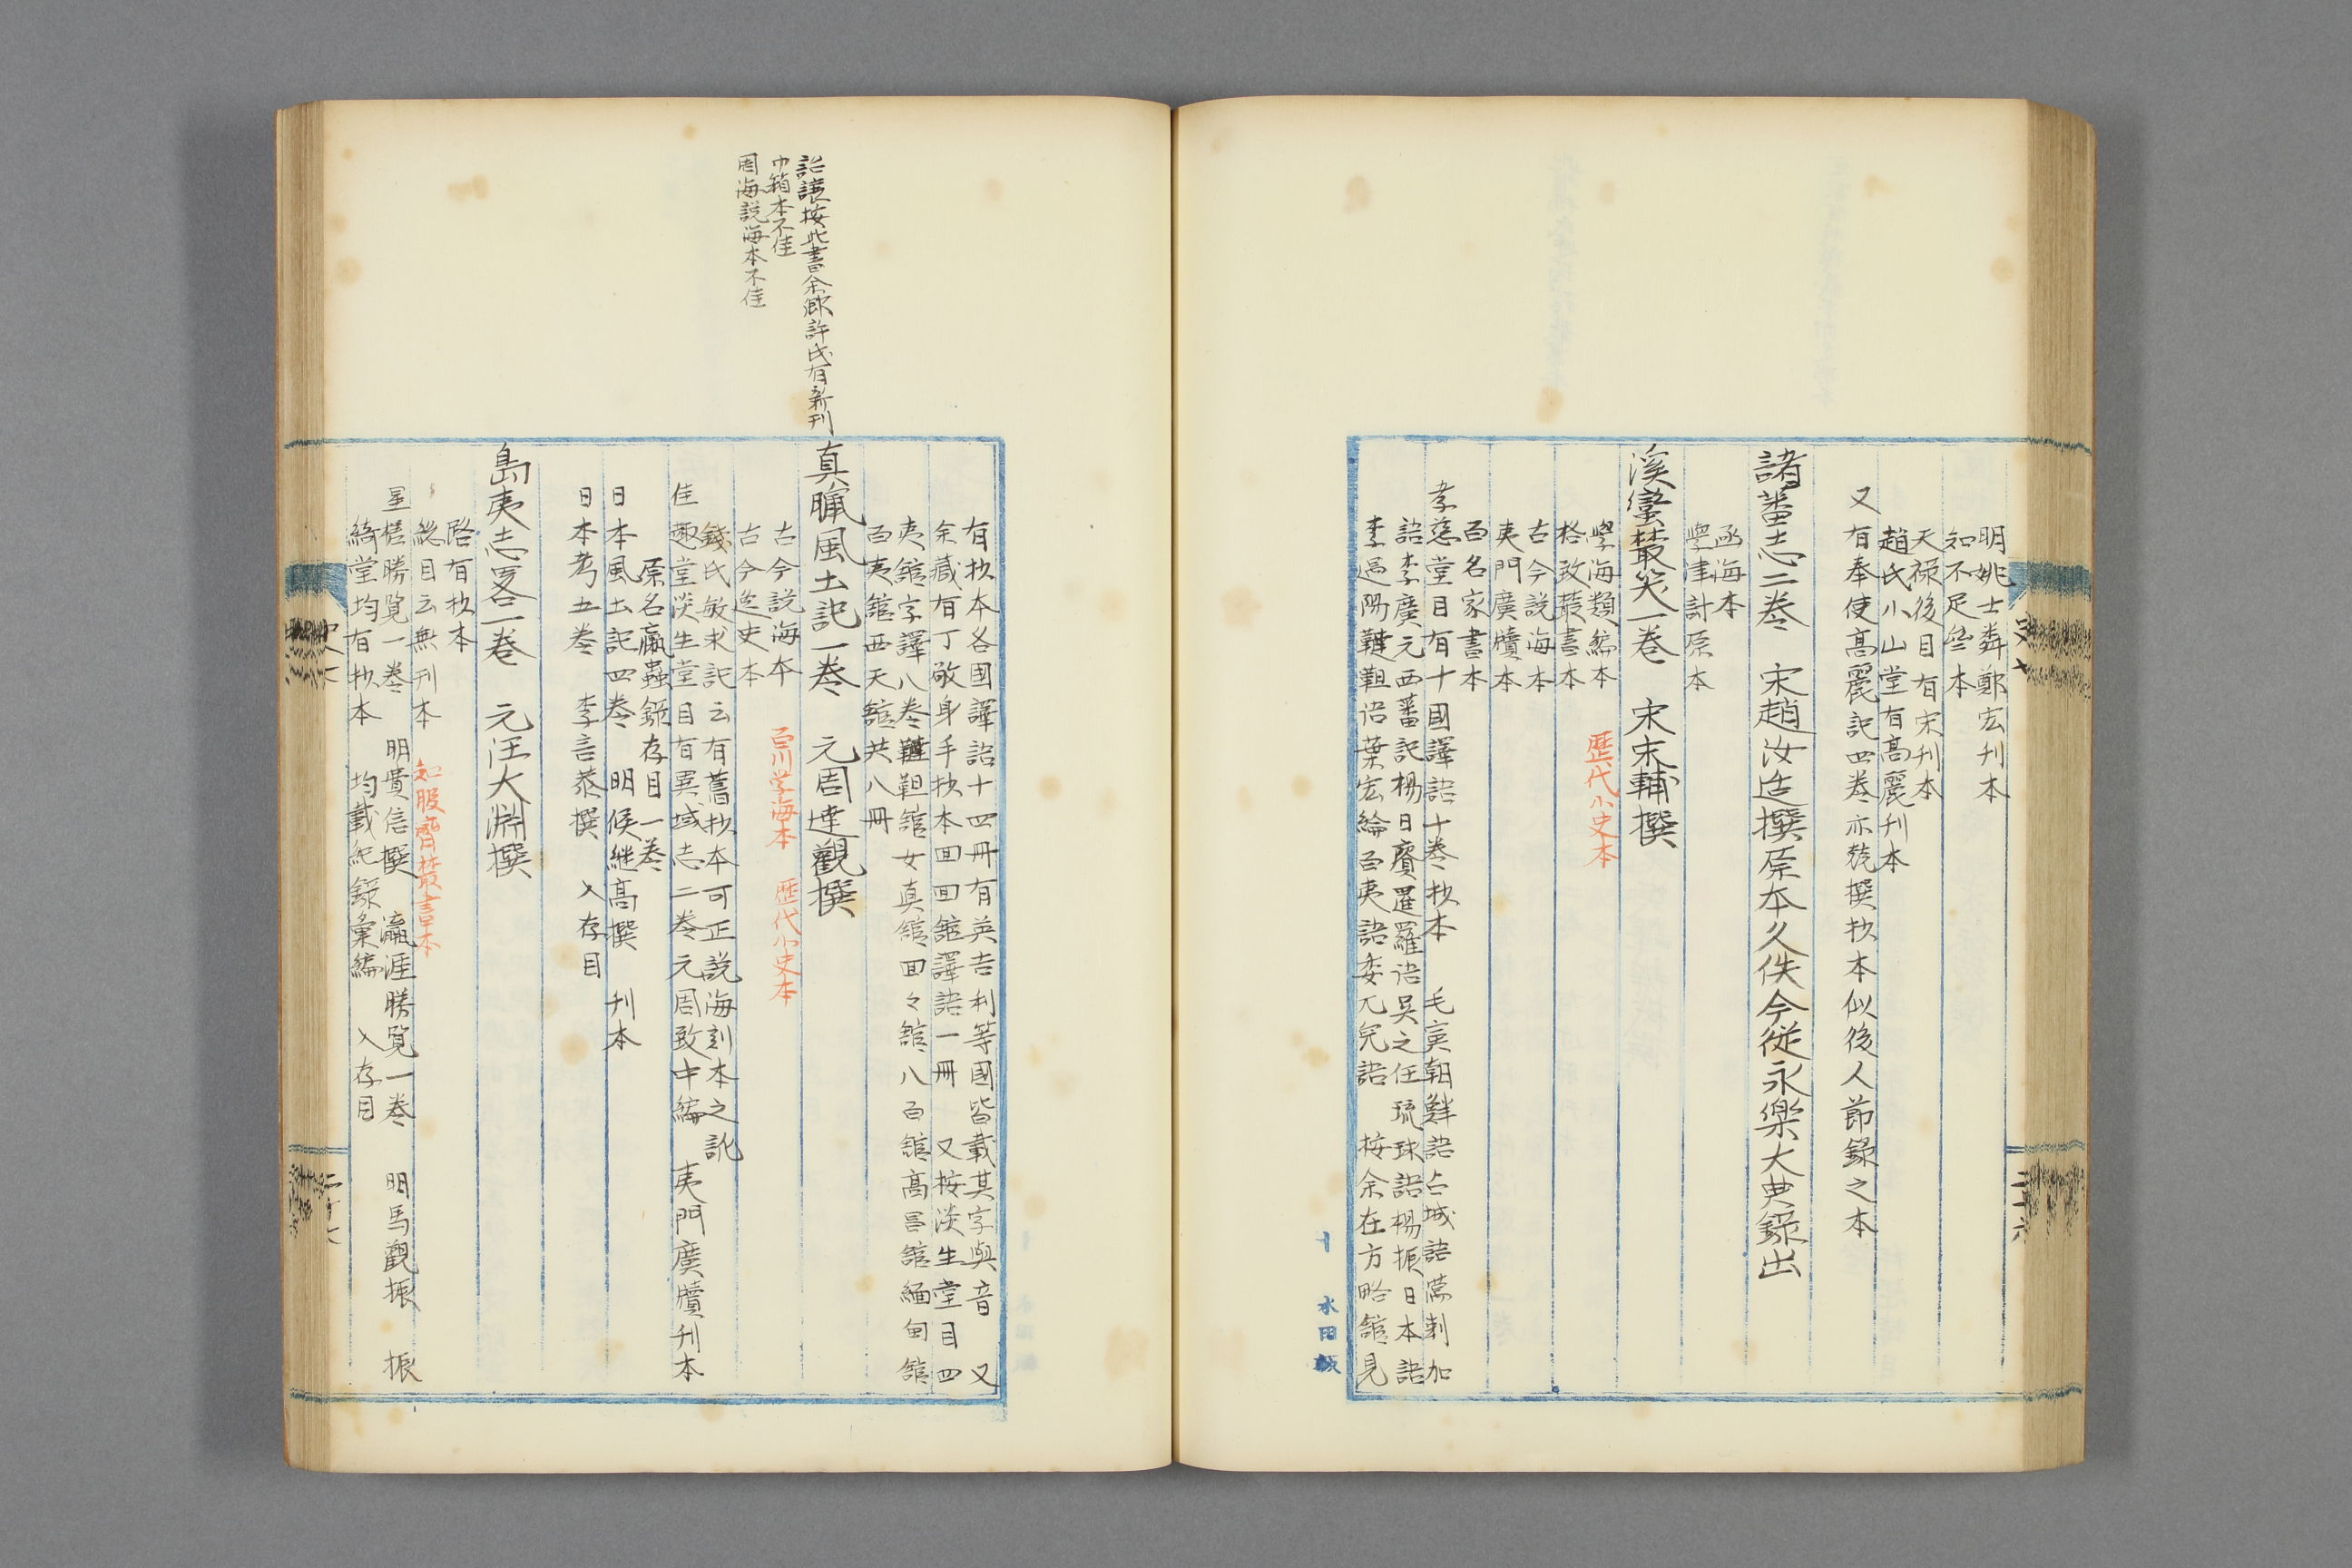 明姚士粦鄭宏刊本
知不足齋本
天禄後目有宋刊本
趙氏小山堂有高麗刊本
又有奉使高麗記四卷亦兢撰抄本似後人節錄之本
諸蕃志二卷 宋趙汝适撰原本久佚今從永樂大典錄出
函海本
學津討原本
溪蠻叢笑一卷 宋朱輔撰
學海類編本 歷代小史本
格致叢書本
古今説海本
夷門廣牘本
百名家書本
孝慈堂目有十國譯語十卷抄本 毛寅朝鮮語占城語滿剌加
語李廣元西番記楊日賓暹羅语吳之任琉球語楊振日本語
李遇陽韃靼语葉宏綸百夷語委兀兒語 按余在方略館見
水田紙
有抄本各國譯語十四冊有英吉利等國皆載其字與音 又
余藏有丁敬身手抄本回回館譯語一冊 又按淡生堂目四
夷館字譯八卷韃靼館女真館回々館八百館高昌館緬甸館
百夷館西天館共八冊
詒讓按此書余鄉許氏有新刊
巾箱本不佳
周海説海本不佳
真臘風土記一卷 元周達觀撰
古今説海本 百川学海本 歷代小史本
古今逸史本
錢氏敏求記云有舊抄本可正説海刻本之訛
佳趣堂淡生堂目有異域志二卷元周致中編 夷門廣牘刊本
原名臝蟲錄存目一卷
日本風土記四卷 明侯継高撰 刊本
日本考五卷 李言恭撰 入存目
島夷志畧一卷 元汪大淵撰
路有抄本
総目云無刊本 知服齋叢書本
星槎勝覧一卷 明費信撰 瀛涯勝覧一卷 明馬觀振 振
綺堂均有抄本 均載紀錄彙編 入存目